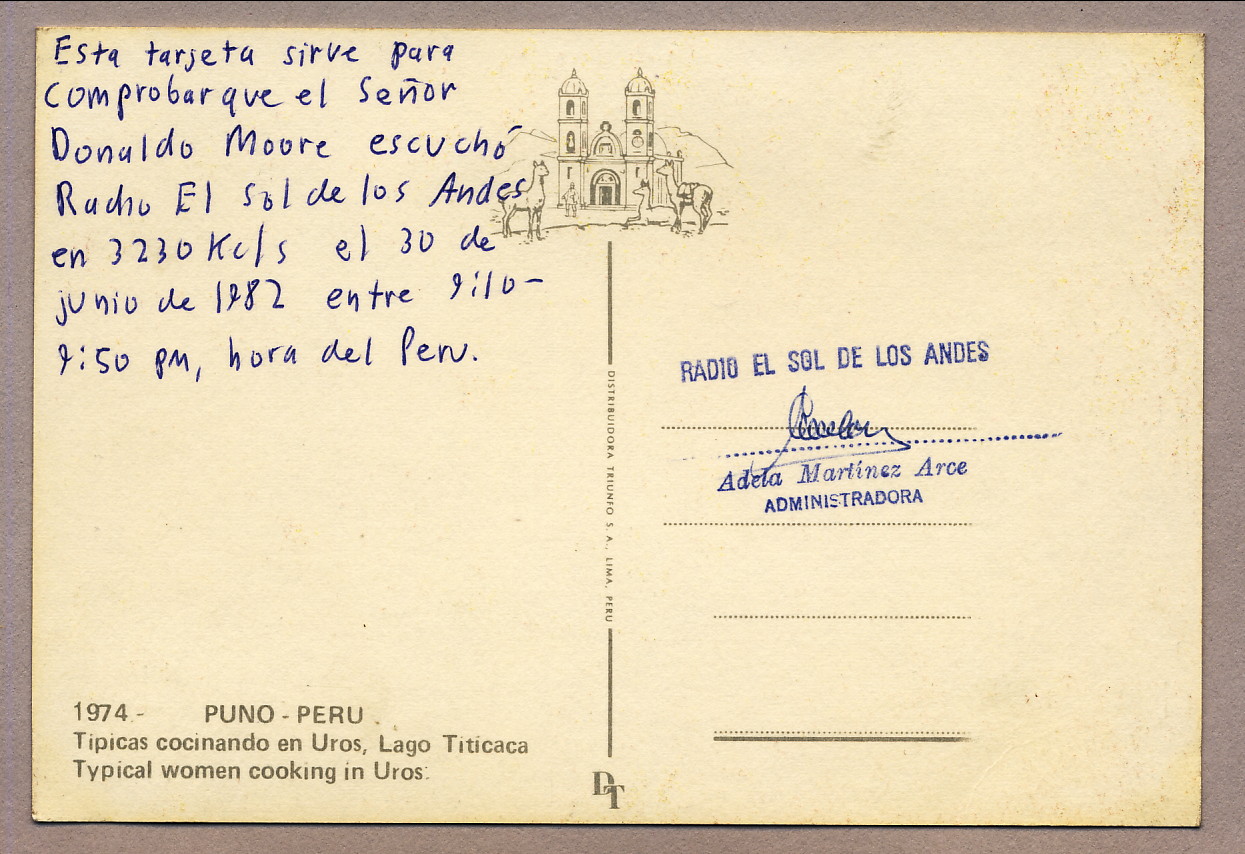 Esta tarjeta sirve para
comprobar que el Señor
Donaldo Moore escuchó
Radio El Sol de los Andes
en 3230 Kc/s el 30 de
junio de 1982 entre 9:10-
9:50 pm, hora del Peru.
RADIO EL SOL DE LOS ANDES
Adela Martínez Arce
ADMINISTRADORA
DISTRIBUIDORA TRIUNFO S. A., LIMA, PERU
1974.- PUNO - PERU
Tipicas cocinando en Uros, Lago Titicaca
Typical women cooking in Uros.
DT